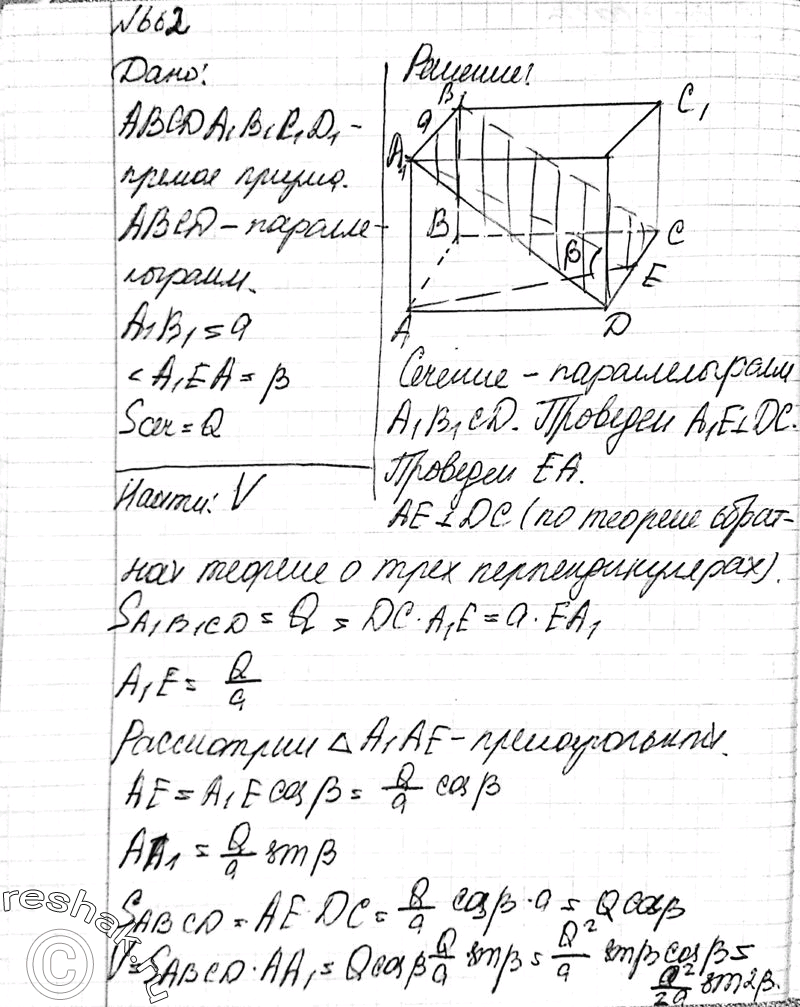 №662
Дано:
ABCDA₁B₁C₁D₁ –
прямая призма.
ABCD – паралле-
лограмм.
A₁B₁ = a
∠A₁EA = β
Sсеч = Q
Найти: V
Решение:
B₁
C₁
a
A₁
B
C
β
E
A
D
Сечение – параллелограмм
A₁B₁CD. Проведем A₁E⊥DC.
Проведем EA.
AE⊥DC (по теореме обрат-
ная теореме о трех перпендикулярах).
S A₁B₁CD = Q = DC · A₁E = a · EA₁
A₁E = Q/a
Рассмотрим △A₁AE – прямоугольный.
AE = A₁E cosβ = Q/a cosβ
AA₁ = Q/a sinβ
S ABCD = AE · DC = Q/a cosβ · a = Q cosβ
V = S ABCD · AA₁ = Q cosβ Q/a sinβ = Q²/a sinβ cosβ =
Q²/2a sin2β.
© reshak.ru